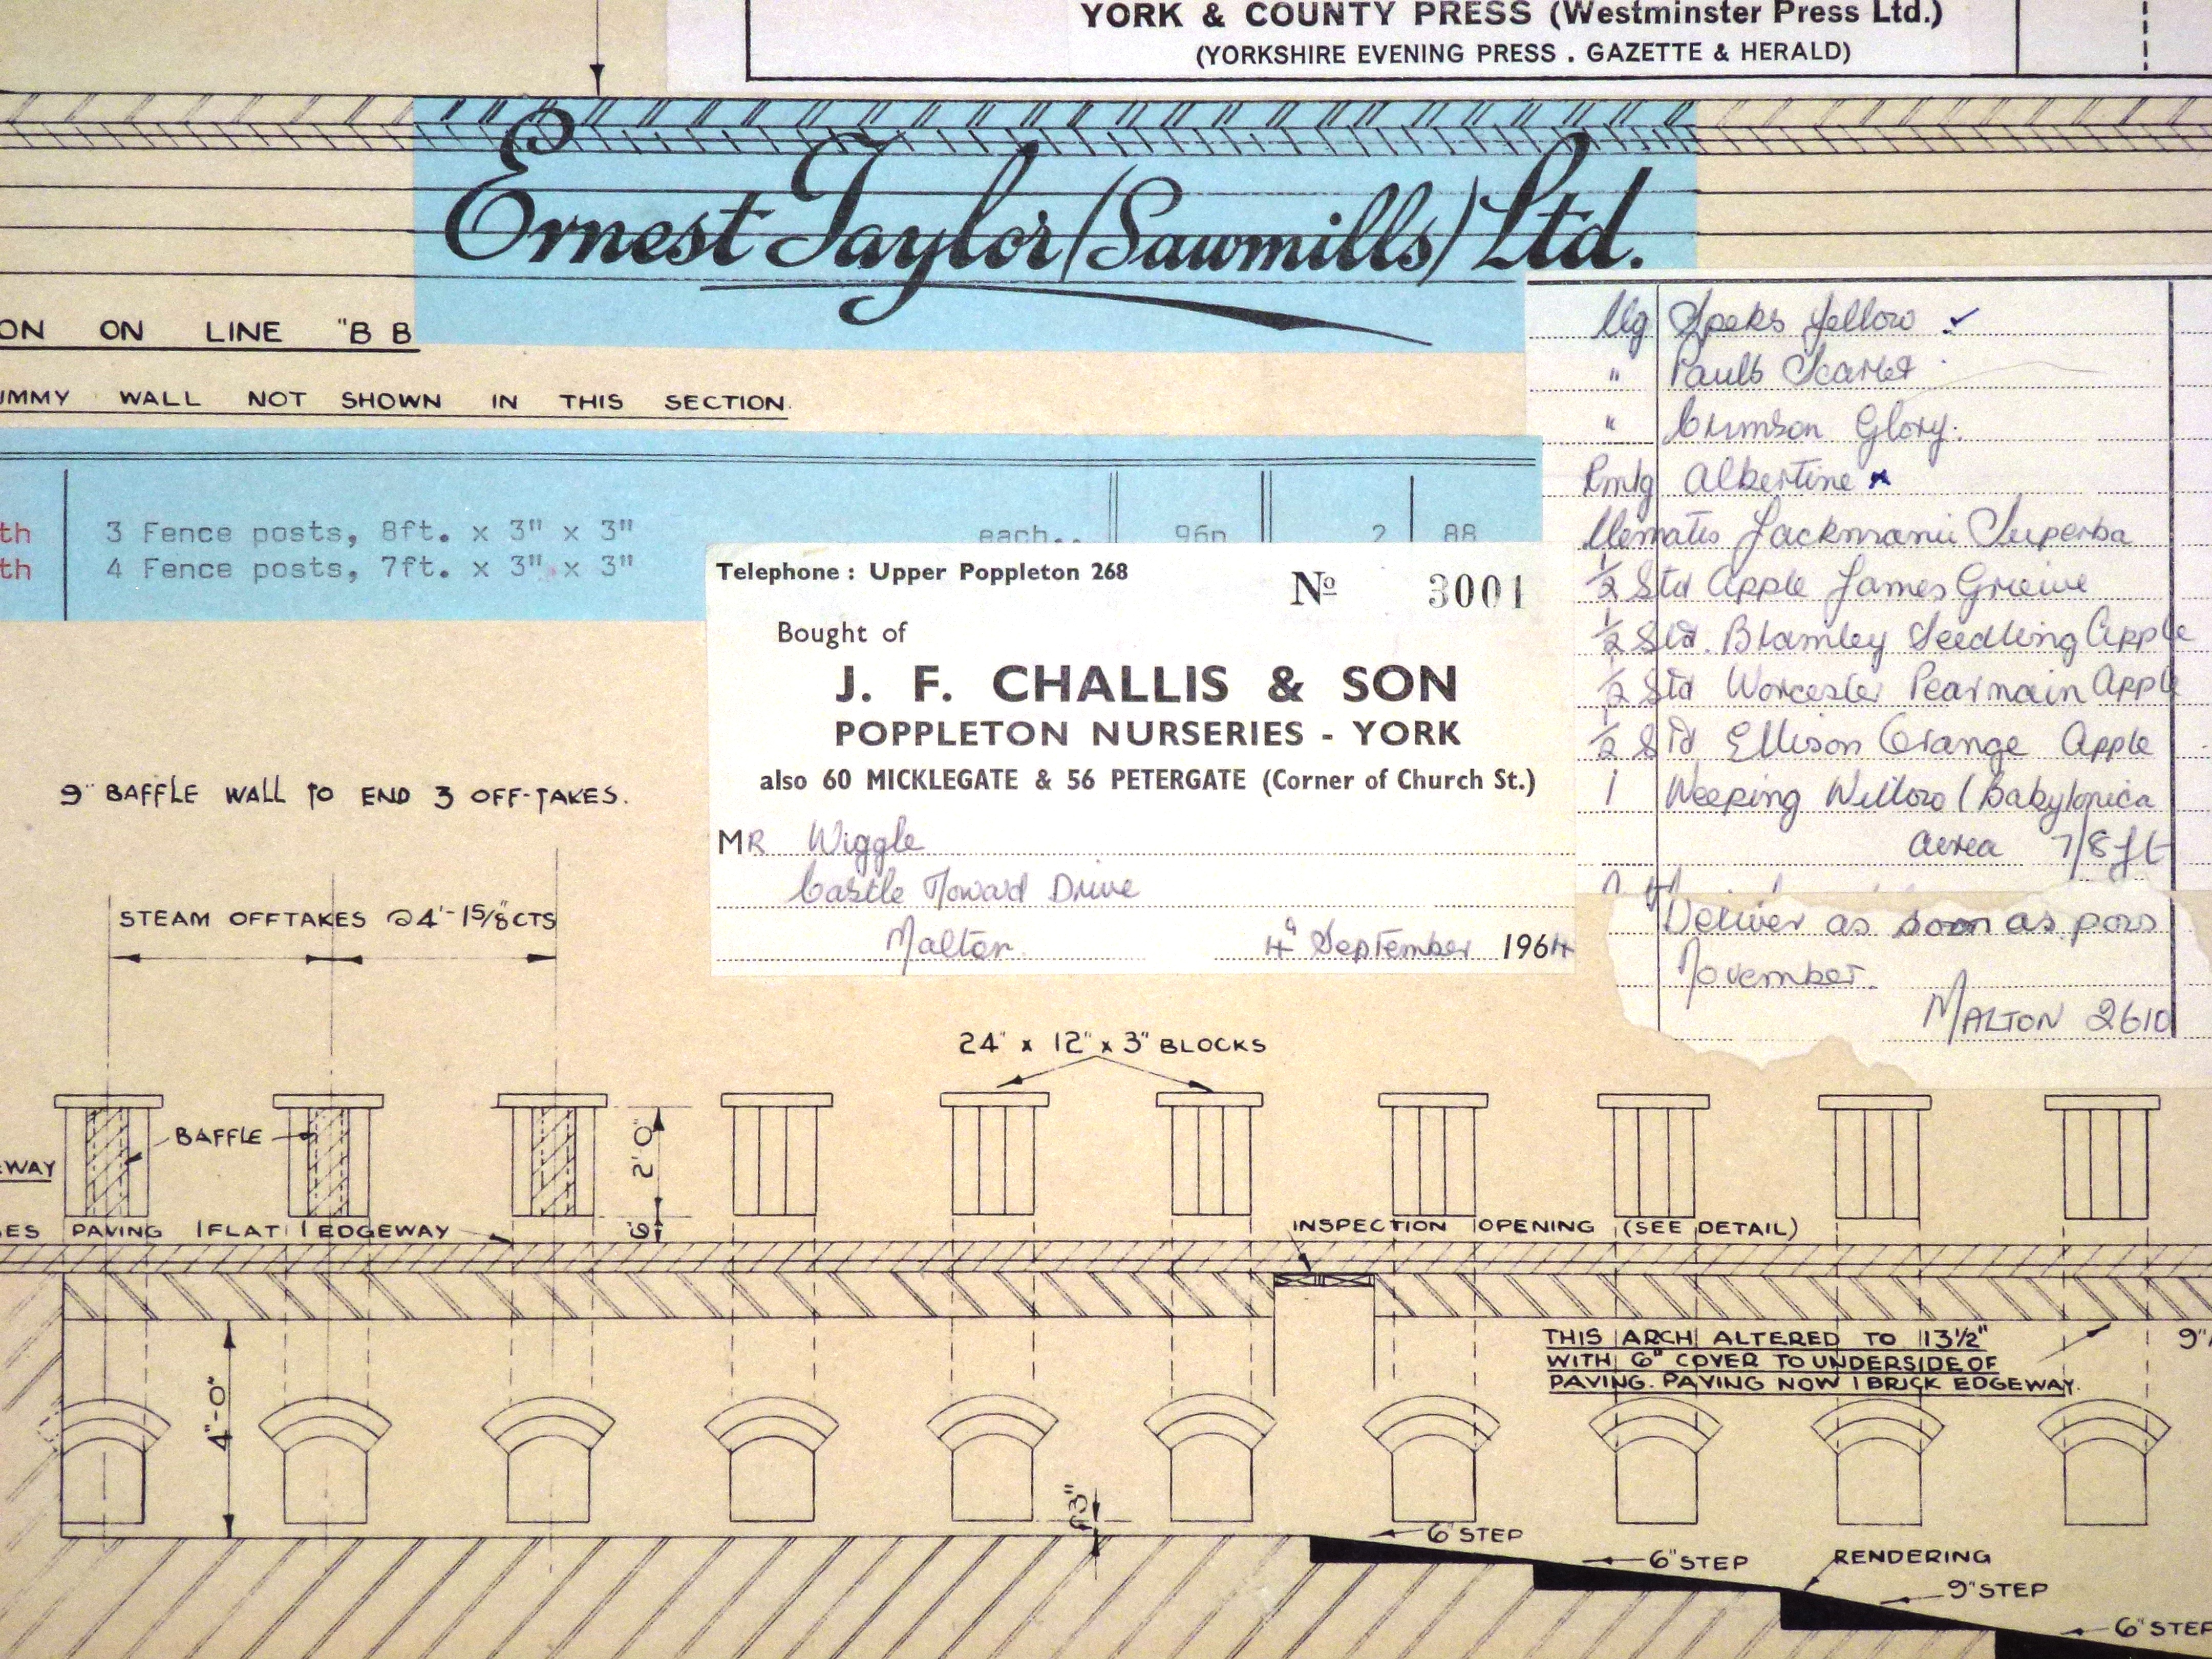 YORK & COUNTY PRESS (Westminster Press Ltd.)
(YORKSHIRE EVENING PRESS . GAZETTE & HERALD)
Ernest Taylor (Sawmills) Ltd.
ON ON LINE "B B
UMMY WALL NOT SHOWN IN THIS SECTION.
th 3 Fence posts, 8ft. x 3" x 3" each.. 96p 2 88
th 4 Fence posts, 7ft. x 3" x 3"
Clg Speks Yellow ✓
" Pauls Scarlet
" Crimson Glory.
Rmlg Albertine
Clematis Jackmanii Superba
1/2 Std Apple James Grieve
1/2 Std. Bramley Seedling Apple
1/2 Std Worcester Pearmain Apple
1/2 Std Ellison Orange Apple
1 Weeping Willow (Babylonica
area 7/8 ft
Deliver as soon as poss
November.
MALTON 2610
Telephone : Upper Poppleton 268
Nº 3001
Bought of
J. F. CHALLIS & SON
POPPLETON NURSERIES - YORK
also 60 MICKLEGATE & 56 PETERGATE (Corner of Church St.)
MR Wiggle
Castle Howard Drive
Malton. 4th September 1964
9" BAFFLE WALL TO END 3 OFF-TAKES.
STEAM OFFTAKES @ 4'-1 5/8" CTS
24" x 12" x 3" BLOCKS
BAFFLE
2' 0"
EWAY
6"
ES PAVING 1 FLAT 1 EDGEWAY
INSPECTION OPENING (SEE DETAIL)
THIS ARCH ALTERED TO 13½"
WITH 6" COVER TO UNDERSIDE OF
PAVING. PAVING NOW 1 BRICK EDGEWAY.
9"
4'-0"
3"
6" STEP
6" STEP
RENDERING
9" STEP
6" STEP